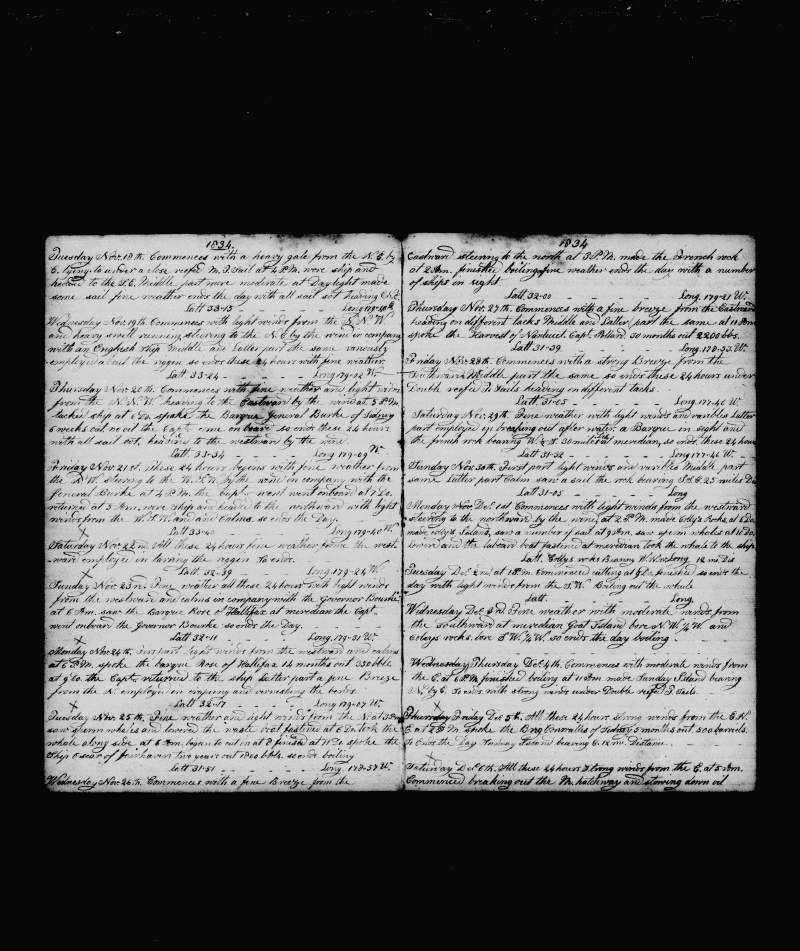 1834.
Tuesday Nov. 18th. Commences with a heavy gale from the N.E. by
E. lying to under a close reefed M.T. Sail at 4 P.M. wore ship and
headed to the S.E. Middle part more moderate at Day light made
some sail fine weather ends the day with all sail set heading N.E.
Latt 33-13 Long 179-40
Wednesday Nov. 19th. Commences with light winds from the N.N.W.
and heavy swell running steering to the N.E. by the wind in company
with an English ship Middle and Latter part the same variously
employed about the riggen so ends these 24 hours with fine weather.
Latt 33-24 Long 179-12 W.
Thursday Nov. 20th. Commences with fine weather and light winds
from the N.N.W. heading to the Eastward by the wind at 3 P.M.
tacked ship at 6 Do. spoke the Barque General Burke of Sidney
6 weeks out no oil the Capt. came on board so ends these 24 hours
with all sail out, heading to the westward by the wind.
Latt 33-34 Long 179-09 W.
Friday Nov. 21st. These 24 hours begins with fine weather from
the S.W. steering to the W.N.W. by the wind in company with the
General Burke at 4 P.M. the Capt. went onboard at 7 Do.
returned at 5 A.M. wore ship and headed to the northward with light
winds from the W.S.W. and Calms. so ends the Day.
Latt 33-40 Long 179-40 W.
X
Saturday Nov. 22nd. All these 24 hours fine weather from the west-
ward employed on tarring the riggen So ends.
Latt 32-59 Long 179-24 W.
X
Sunday Nov. 23rd. Fine weather all these 24 hours with light winds
from the westward and calms in company with the Governor Bourke
at 6 A.m. saw the Barque Rose of Halifax at meredian the Capt.
went onboard the Governor Bourke so ends the Day.
Latt 32-11 Long. 179-31 W.
X
Monday Nov. 24th. First part light winds from the westward and calms
at 6 P.M. spoke the barque Rose of Halifax 14 months out 350 bbls
at 9 Do. the Capt. returned to the ship Letter part a fine Breeze
from the N. employed on scraping and varnishing the bends.
Latt 32-17 Long. 179-07 W.
X
Tuesday Nov. 25th. Fine weather and light winds from the N. at 3 P.m
saw sperm whales and lowered the waste boat fastened at 6 Do. took the
whale along side at 6 A.m. began to cut in at 8 finised at 11 Do. spoke the
Ship Oscar of fairhaven two years out 1800 bbls. so ends boiling
Latt 31-51 Long. 178-57 W.
Wednesday Nov. 26th. Commences with a fine Breeze from the
1834
Eastward steering to the north at 3 P.M. made the French rock
at 2 A.m. finished boiling fine weather ends the day with a number
of ships in sight.
Latt 32-00 Long. 179-21 W.
Thursday Nov. 27th. Commences with a fine breeze from the Eastward
heading on different tacks Middle and Latter part the same at 11 A.m
spoke the Harvest of Nantucket Capt. Pollard. 30 months out 2200 bbs.
Latt 31-39 Long. 178-53 W.
Friday Nov. 28th. Commences with a strong Breeze from the
Southward Middle part the same so ends these 24 hours under
Double reefed T. Sails heading on different tacks.
Latt 31-05 Long. 177-40 W.
Saturday Nov. 29th. Fine weather with light winds and varibles Latter
part employed in breaking out after water. a Barque in sight and
the french rock bearing W. by S. 30 miles at meridian, so ends, these 24 hours
Latt 31-32 Long 177-46 W.
Sunday Nov. 30th. First part light winds and varibles Middle part
same Latter part Calm saw a sail the rock bearing S.S.E. 25 miles Dis
Latt 31-05 Long
Monday Nov. Dec. 1st Commences with light winds from the westward
steering to the northward by the wind, at 2 P.M. made Collys Rocks, at 6 Do.
made collys Island, saw a number of sail at 9 A.m. saw sperm whales at 10 Do.
lowerd and the labourd boat fastened at meredian took the whale to the ship.
Latt. Collys rocks Bearing W.N.W. Long. 12 m. Dis
Tuesday Dec. 2nd at 1 P.M. Commence cutting at 5 Do. finished so ends the
day with light winds from the S.W. Boiling out the whale
Latt. Long.
Wednesday Dec. 3rd Fine weather with moderate winds from
the Southward at meredian Goat Island bore N.W. 1/4 W. and
Coleys rocks. bore S.W. 1/2 W. so ends the day boiling.
Wednesday Thursday Dec. 4th. Commences with moderate winds from
the E. at 6 P.M. finished boiling at 11 A.m. made Sunday Island bearing
N. by E. So ends with strong winds under Double reefed T. Sails.
X
Thursday Friday Dec. 5th. All these 24 hours strong winds from the E.N.
E. at 2 P.M. spoke the Brig of Sidney 5 months out, 300 barrels.
So Ends the Day Sunday Island bearing Distance.
X
Saturday Dec. 6th. All these 24 hours strong winds from the E. at 5 A.m.
Commenced breaking out the M. hatchway and stowing down oil